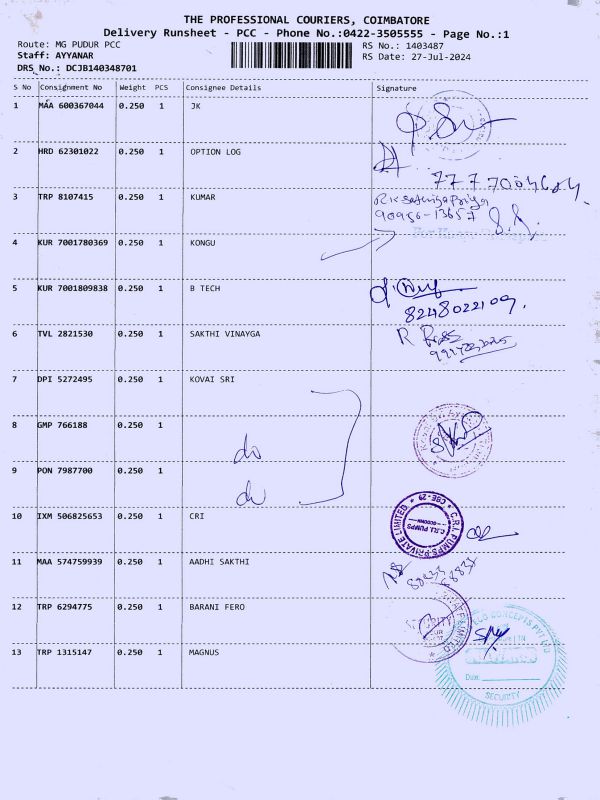 THE PROFESSIONAL COURIERS, COIMBATORE
Delivery Runsheet - PCC - Phone No.:0422-3505555 - Page No.:1
Route: MG PUDUR PCC
RS No.: 1403487
Staff: AYYANAR
RS Date: 27-Jul-2024
DRS No.: DCJB140348701
S No Consignment No Weight PCS Consignee Details Signature
1 MAA 600367044 0.250 1 JK
2 HRD 62301022 0.250 1 OPTION LOG
3 TRP 8107415 0.250 1 KUMAR
90950-13657
4 KUR 7001780369 0.250 1 KONGU
5 KUR 7001809838 0.250 1 B TECH
8248022109
6 TVL 2821530 0.250 1 SAKTHI VINAYGA
7 DPI 5272495 0.250 1 KOVAI SRI
8 GMP 766188 0.250 1
do
9 PON 7987700 0.250 1
do
10 IXM 506825653 0.250 1 CRI
C.R.I. PUMPS PRIVATE LIMITED
CBE-29
11 MAA 574759939 0.250 1 AADHI SAKTHI
12 TRP 6294775 0.250 1 BARANI FERO
SECURITY
13 TRP 1315147 0.250 1 MAGNUS
CONCEPTS PVT LTD
Date:
SECURITY